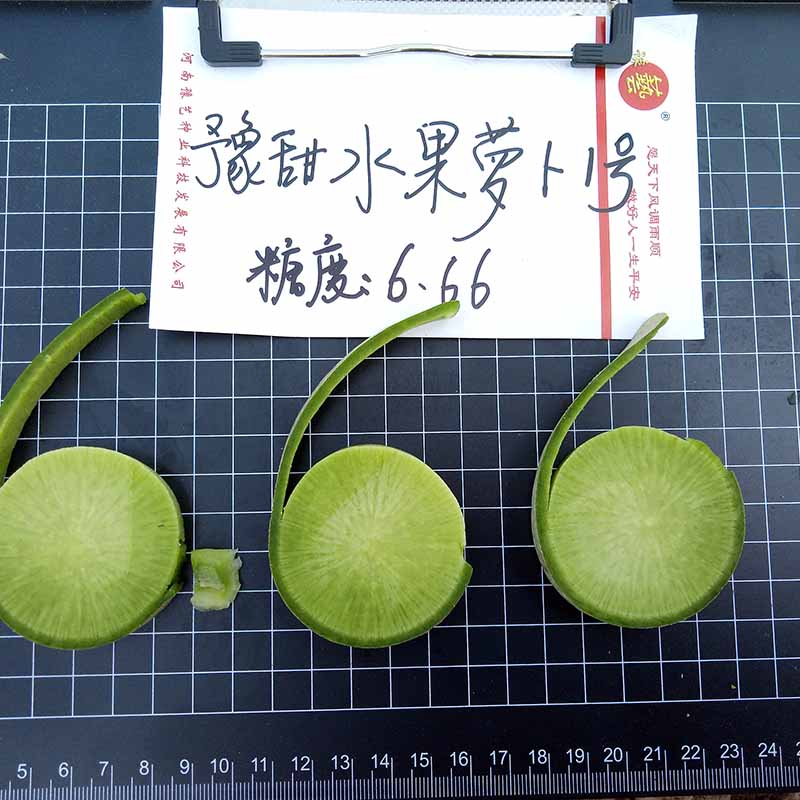 河南禄艺种业科技发展有限公司
豫甜水果萝卜1号
糖度:6.66
艺
®
愿天下风调雨顺
做好人一生平安
5 6 7 8 9 10 11 12 13 14 15 16 17 18 19 20 21 22 23 24